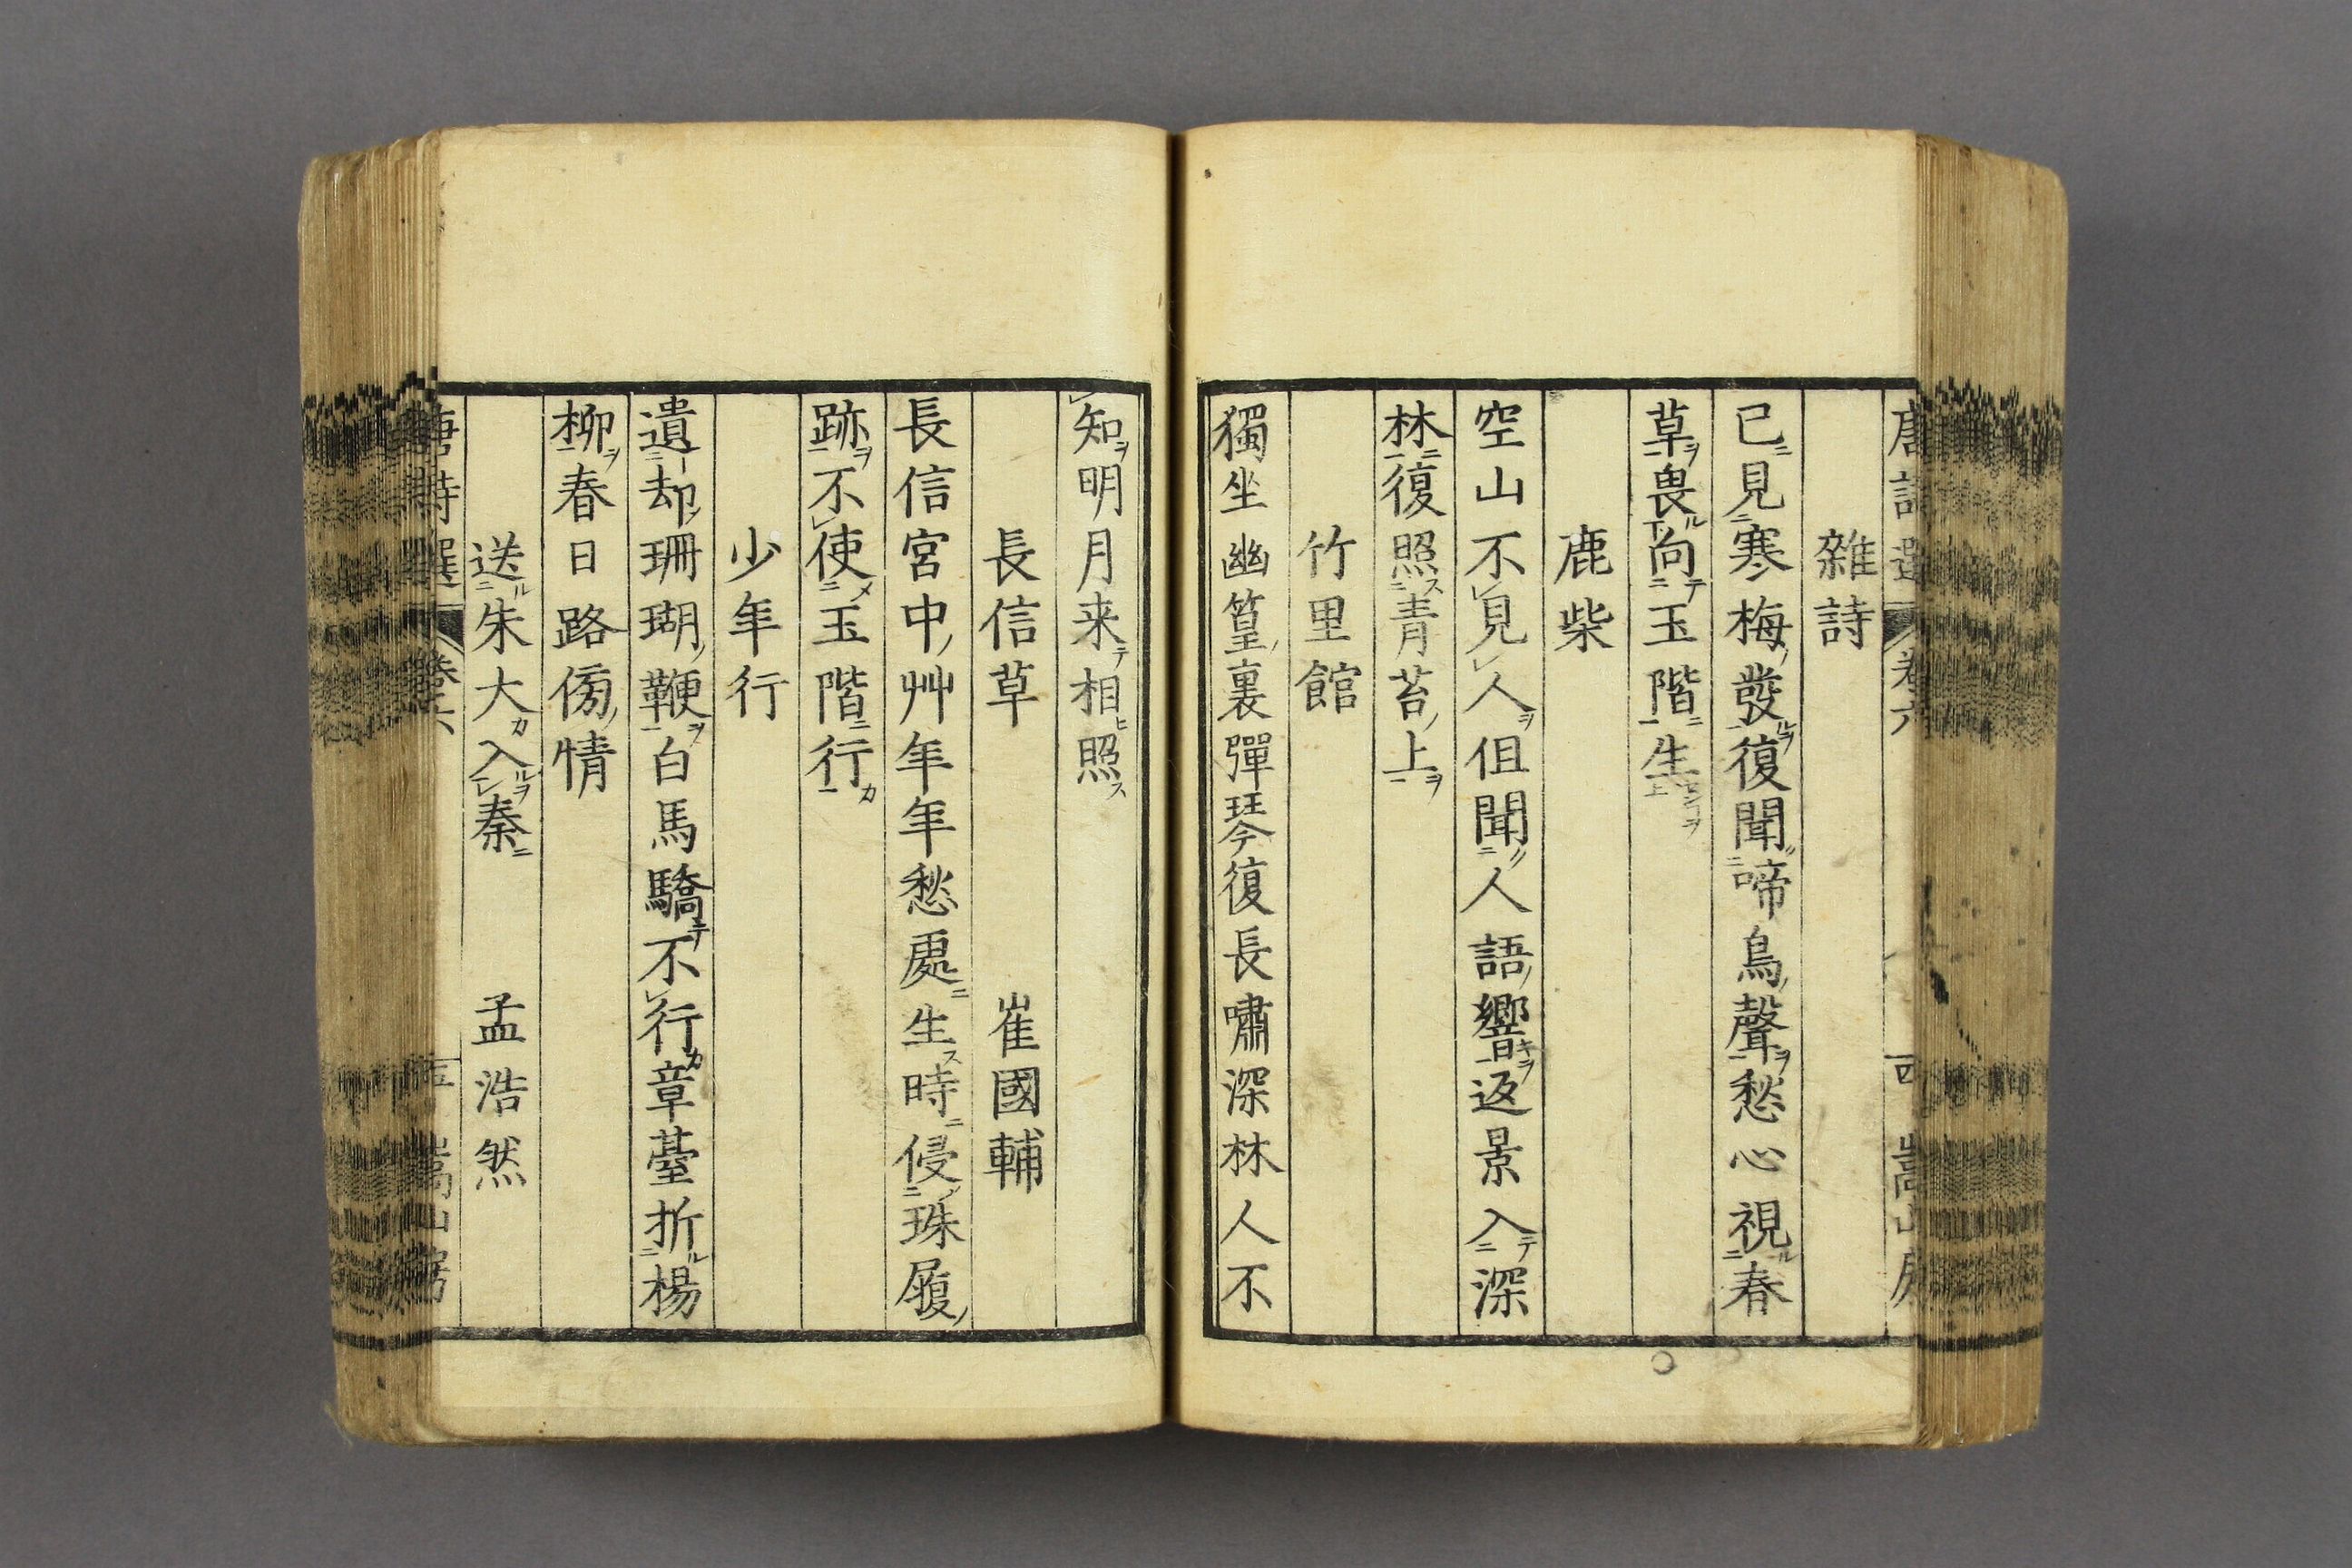 唐詩選 卷六 四 嵩山房
雜詩
已見寒梅發復聞啼鳥聲愁心視春
草畏向玉階生
鹿柴
空山不見人但聞人語響返景入深
林復照青苔上
竹里館
獨坐幽篁裏彈琴復長嘯深林人不
知明月来相照
長信草 崔國輔
長信宮中艸年年愁處生時侵珠履
跡不使玉階行
少年行
遺却珊瑚鞭白馬驕不行章臺折楊
柳春日路傍情
送朱大入秦 孟浩然
唐詩選 卷六 五 嵩山房